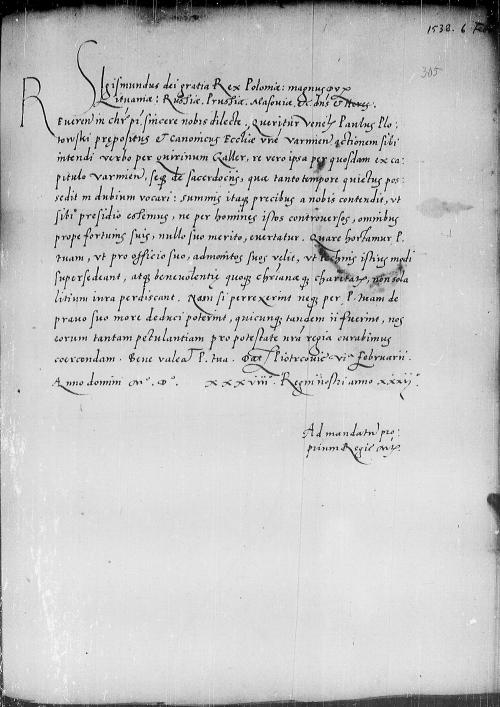 1538. 6 Feb
305
SIgismundus dei gratia Rex Poloniæ: magnus Dux
Lituaniæ: Russiæ, Prussiæ, Masoviæ, &c. dns & Heres.
REveren in chro pr, sincere nobis dilecte. Queritur Venelis Paulus Plo-
towski præpositus & Canonicus Eccliæ vrẽ varmien actionem sibi
intendi verbo per Quirinum Galler, re vero ipsa per quosdam ex ca-
pitulo varmien, seq de sacerdociis, quæ tanto tempore quietus pos-
sedit in dubium vocari: summis itaq precibus a nobis contendit, vt
sibi presidio essemus, ne per homines istos controversos, omnibus
prope fortunis suis, nullo suo merito, evertatur. Quare hortamur P.
tuam, vt pro officio suo, admonitos suos velit, vt technis istius modi
supersedeant, atq benevolentiæ quoq chrianæq charitatis, non sola
litium iura perdiscant. Nam si perrexerint neq per P. tuam de
pravo suo more deduci poterint, quicunq tandem ii fuerint, nos
eorum tantam petulantiam pro potestate nra regia curabimus
coercendam. Bene valeat P. tua. Dat Piotrcovie vi Februarii.
Anno domini M. D. XXXVIII. Regni nostri anno xxxij.
Ad mandatu pro-
prium Regie Mtis.